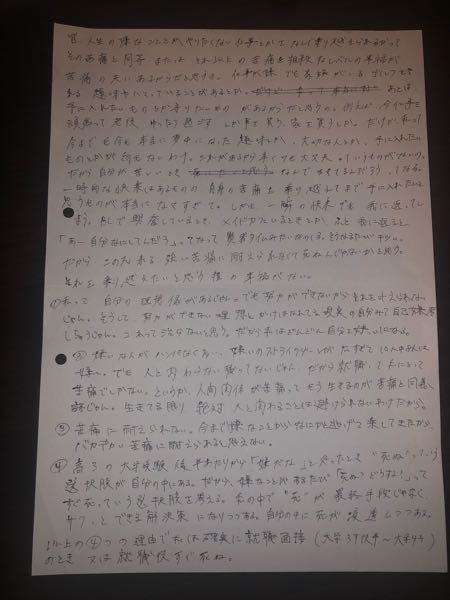 皆、人生の嫌なことしかやりたくない仕事とかを、なんで乗り越えられるかって
その苦痛と同等 またはそれ以上の苦痛を相殺するレベルの幸福が
苦痛の先にあるからだと思うな。仕事が嫌でも家族がいる、
れる 趣味やにとっていることがあるとか。 あとは、
手に入れたいものとか守りたいもの があるからだと思うの。例えば、今仕事を
頑張って老後 ゆったり過ごす とか車を買う、家を買うとか。だけど私って
今までも今も本当に夢中になった趣味とか、大切な人とか、手に入れたい
ものとかが何もないわけ。これがあるから辛くても大丈夫!っていうものがないの。
だから自分が苦しいとき なんで生きてるんだろう、ってなる。
一時的な快楽はあるものの 自身の苦痛を乗り越えてまで手に入れたいと
思うものが本当になさすぎて。しかも一瞬の快楽でも我に返ってし
まう。 して興奮しているとき、メイドカフェいるときとか、ふと我に返ると
「あー自分なにしてんだろう」ってなって賢者タイムみたいなのくる。そうなるタイプ
だから この先来る 強い苦痛に耐えられなくて死ぬんじゃないかと思う。
それを乗り越えたいと思う程の幸福がない。
①私って 自分の理想像があるじゃん。でも努力ができないからそれを叶えられない
じゃん。そうして、努力ができない 理想とかけはなれてる現実の自分みて自己嫌悪
しちゃうじゃん。これって治らないと思う。だから私はどんどん自分を嫌いになるよ。
② 嫌いな人がハンパなく多い、嫌いのストライクゾーンが広すぎて10人中8人は
嫌い。でも人と関わらない職ってないじゃん。だから就職って私にとって
苦痛でしかない。というか、人間関係が苦痛ってもう生きるのが苦痛と同義
語じゃん。生きてる限り 絶対 人と関わることは避けられないわけだから。
③ 苦痛に耐えられない。今まで嫌なことからなにかと逃げて来てきたから、
バカデカい苦痛に耐えられると思えない。
④ 高3の大学受験後半あたりから「嫌だな」と思ったとき "死ぬ"っていう
選択肢が自分の中にある。だから、嫌なことがあるたび「死ぬ?どうする?」って
すぐ死っていう選択肢を考える。私の中で "死"が最終手段じゃなく
サクッとできる解決策になりつつある。自分の中に死が浸透しつつある。
以上の④つの理由で私は確実に就職面接(大学3年後半〜大学4年
のとき 又は就職後すぐ死ぬ。